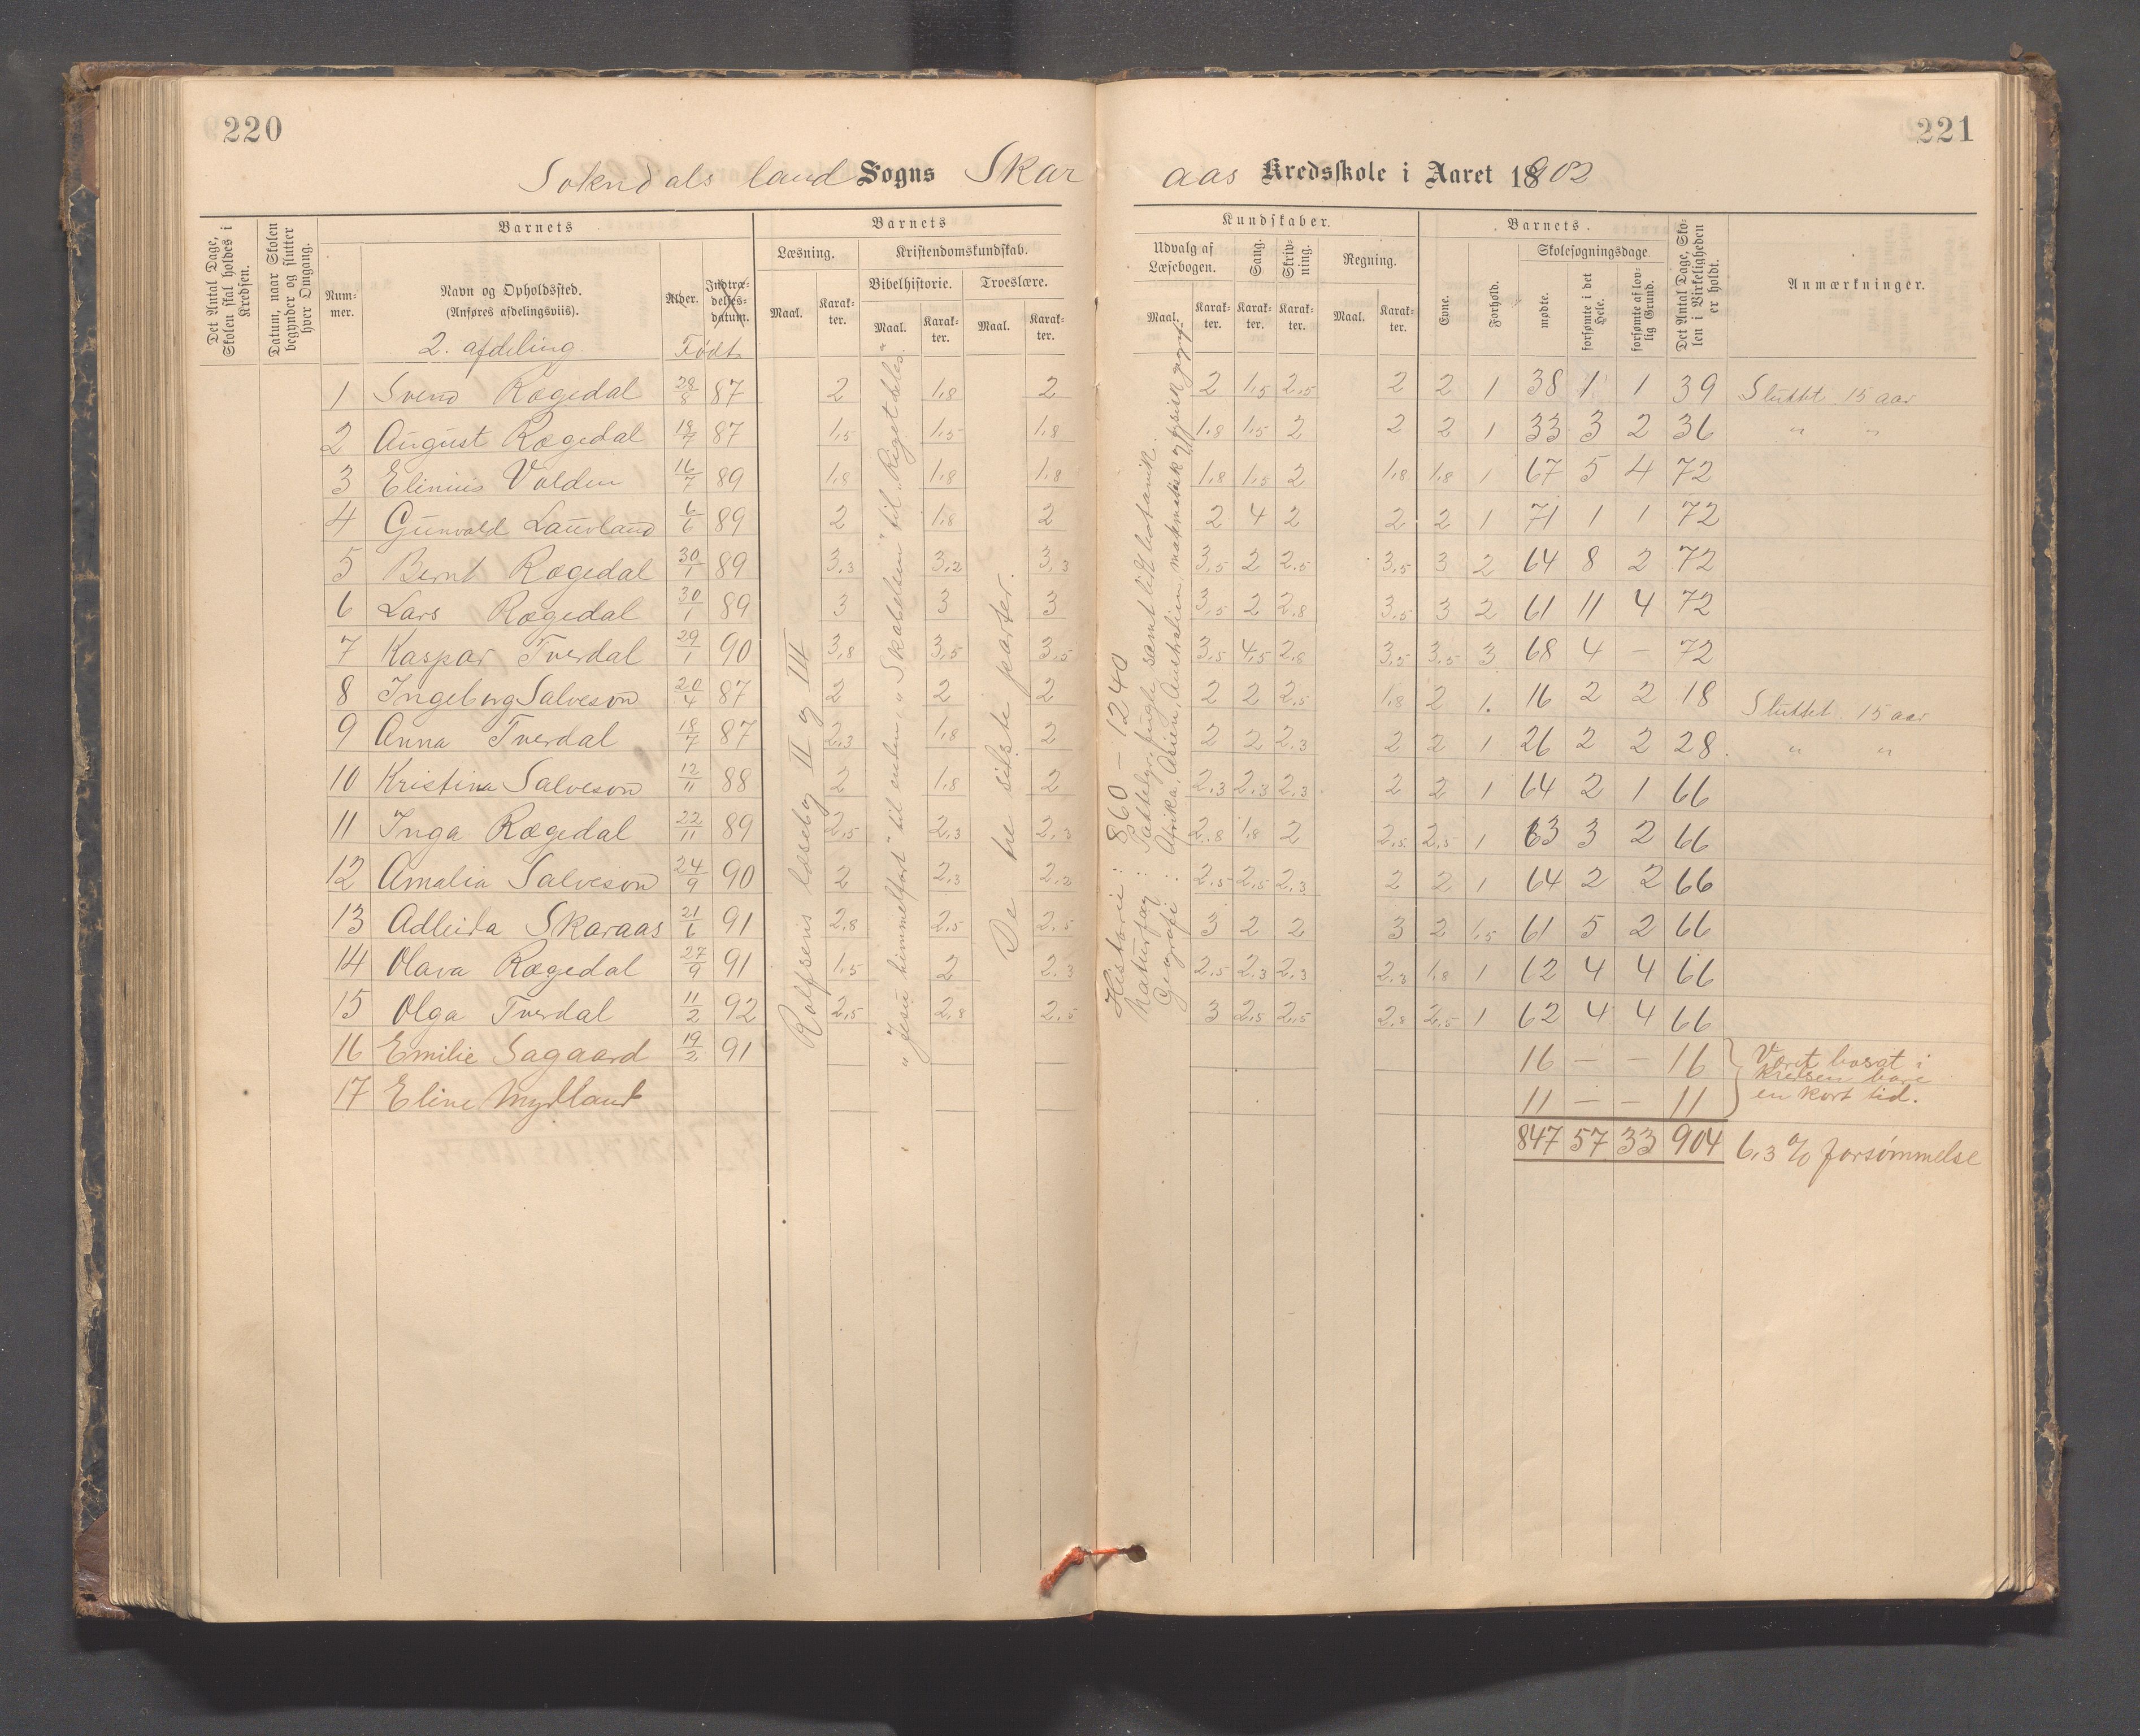 220
221
Sokndals land Sogns Skar
aas Kredsskole i Aaret 18902
Det Antal Dage, Skolen skal holdes i Kredsen.
Datum, naar Skolen begynder og slutter hver Omgang.
Barnets
Num-mer.
Navn og Opholdssted.
(Anføres afdelingsviis).
2. afdeling
Alder.
Indtræ-delses-datum.
Født
Barnets
Læsning.
Kristendomskundskab.
Bibelhistorie. Troeslære.
Maal. Karak-ter. Maal. Karak-ter. Maal. Karak-ter.
Kundskaber.
Udvalg af Læsebogen. Sang. Skriv-ning. Regning.
Maal. Karak-ter. Karak-ter. Karak-ter. Maal. Karak-ter.
Barnets
Evne. Forhold.
Skolesøgningsdage
mødte. forsømte i det Hele. forsømte af lov-lig Grund.
Det Antal Dage, Sko-len i Virkeligheden er holdt.
Anmærkninger.
1 Svend Rægedal 28/8 87 2 1,8 2 2 1,5 2,5 2 2 1 38 1 1 39 Sluttet 15 aar
2 August Rægedal 18/7 87 1,5 1,5 1,8 1,8 1,5 2 2 2 1 33 3 2 36 " "
3 Elinius Valden 16/7 89 1,8 1,8 1,8 1,8 1,5 2 1,8 1,8 1 67 5 4 72
4 Gunvald Lauvland 6/6 89 2 1,8 2 2 4 2 2 2 1 71 1 1 72
5 Bernt Rægedal 30/1 89 3,3 3,2 3,3 3,5 2 2,5 3,5 3 2 64 8 2 72
6 Lars Rægedal 30/1 89 3 3 3 3,5 2 2,8 3,5 3 2 61 11 4 72
7 Kaspar Tverdal 29/1 90 3,8 3,5 3,5 3,5 4,5 2,8 3,5 3,5 3 68 4 – 72
8 Ingeborg Salveson 20/4 87 2 2 2 2 2 2,5 1,8 2 1. 16 2 2 18 Sluttet 15 aar
9 Anna Tverdal 18/7 87 2,3 1,8 2 2 2 2,3 2 2 1 26 2 2 28. " "
10 Kristina Salveson 12/11 88 2 1,8 2 2,3 2,3 2,3 2 2 1 64 2 1 66
11 Inga Rægedal 22/11 89 2,5 2,3 2,3 2,8 1,8 2 2,5 2,5 1 63 3 2 66
12 Amalia Salveson 24/9 90 2 2,3 2,2 2,5 2,5 2,3 2 2 1 64 2 2 66
13 Adleida Skaraas 21/6 91 2,8 2,5 2,5 3 2 2 3 2 1,5 61 5 2 66
14 Olava Rægedal 27/9 91 1,5 2 2,3 2,5 2,3 2,3 2,3 1,8 1 62 4 4 66
15 Olga Tverdal 11/2 92 2,5 2,8 2,5 3 2,5 2,5 2,8 2,5 1 62 4 4 66
16 Emilie Sagaard 19/2 91 16 – – 16
17 Eline Mydland 11 – – 11
Været bosat i
kredsen bare
en kort tid.
847 57 33 904 6,3 % forsømmelse
Rolfsens læsebog II og III
"Skabelsen" til "Riget deles"
"Jesu himmelfart" til enden,
De tre sidste parter.
Historie: 860 – 1240
Naturfag: Pattedyr, fugle samt lidt botanik.
Geografi: Afrika, Asien, Australien, matematisk og fysisk geogr.